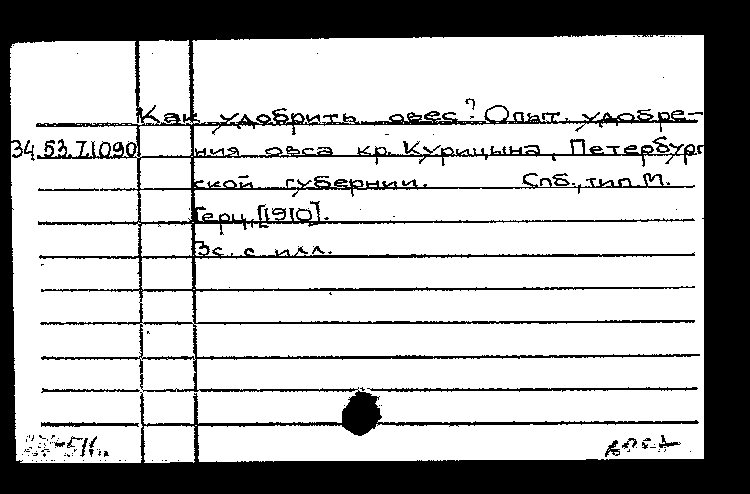 Как удобрить овес? Опыт. удобре-
34.53.7.1090 ния овса кр. Курицына, Петербург
ской губернии. Спб., тип. М.
Герц, [1910].
3с. с илл.